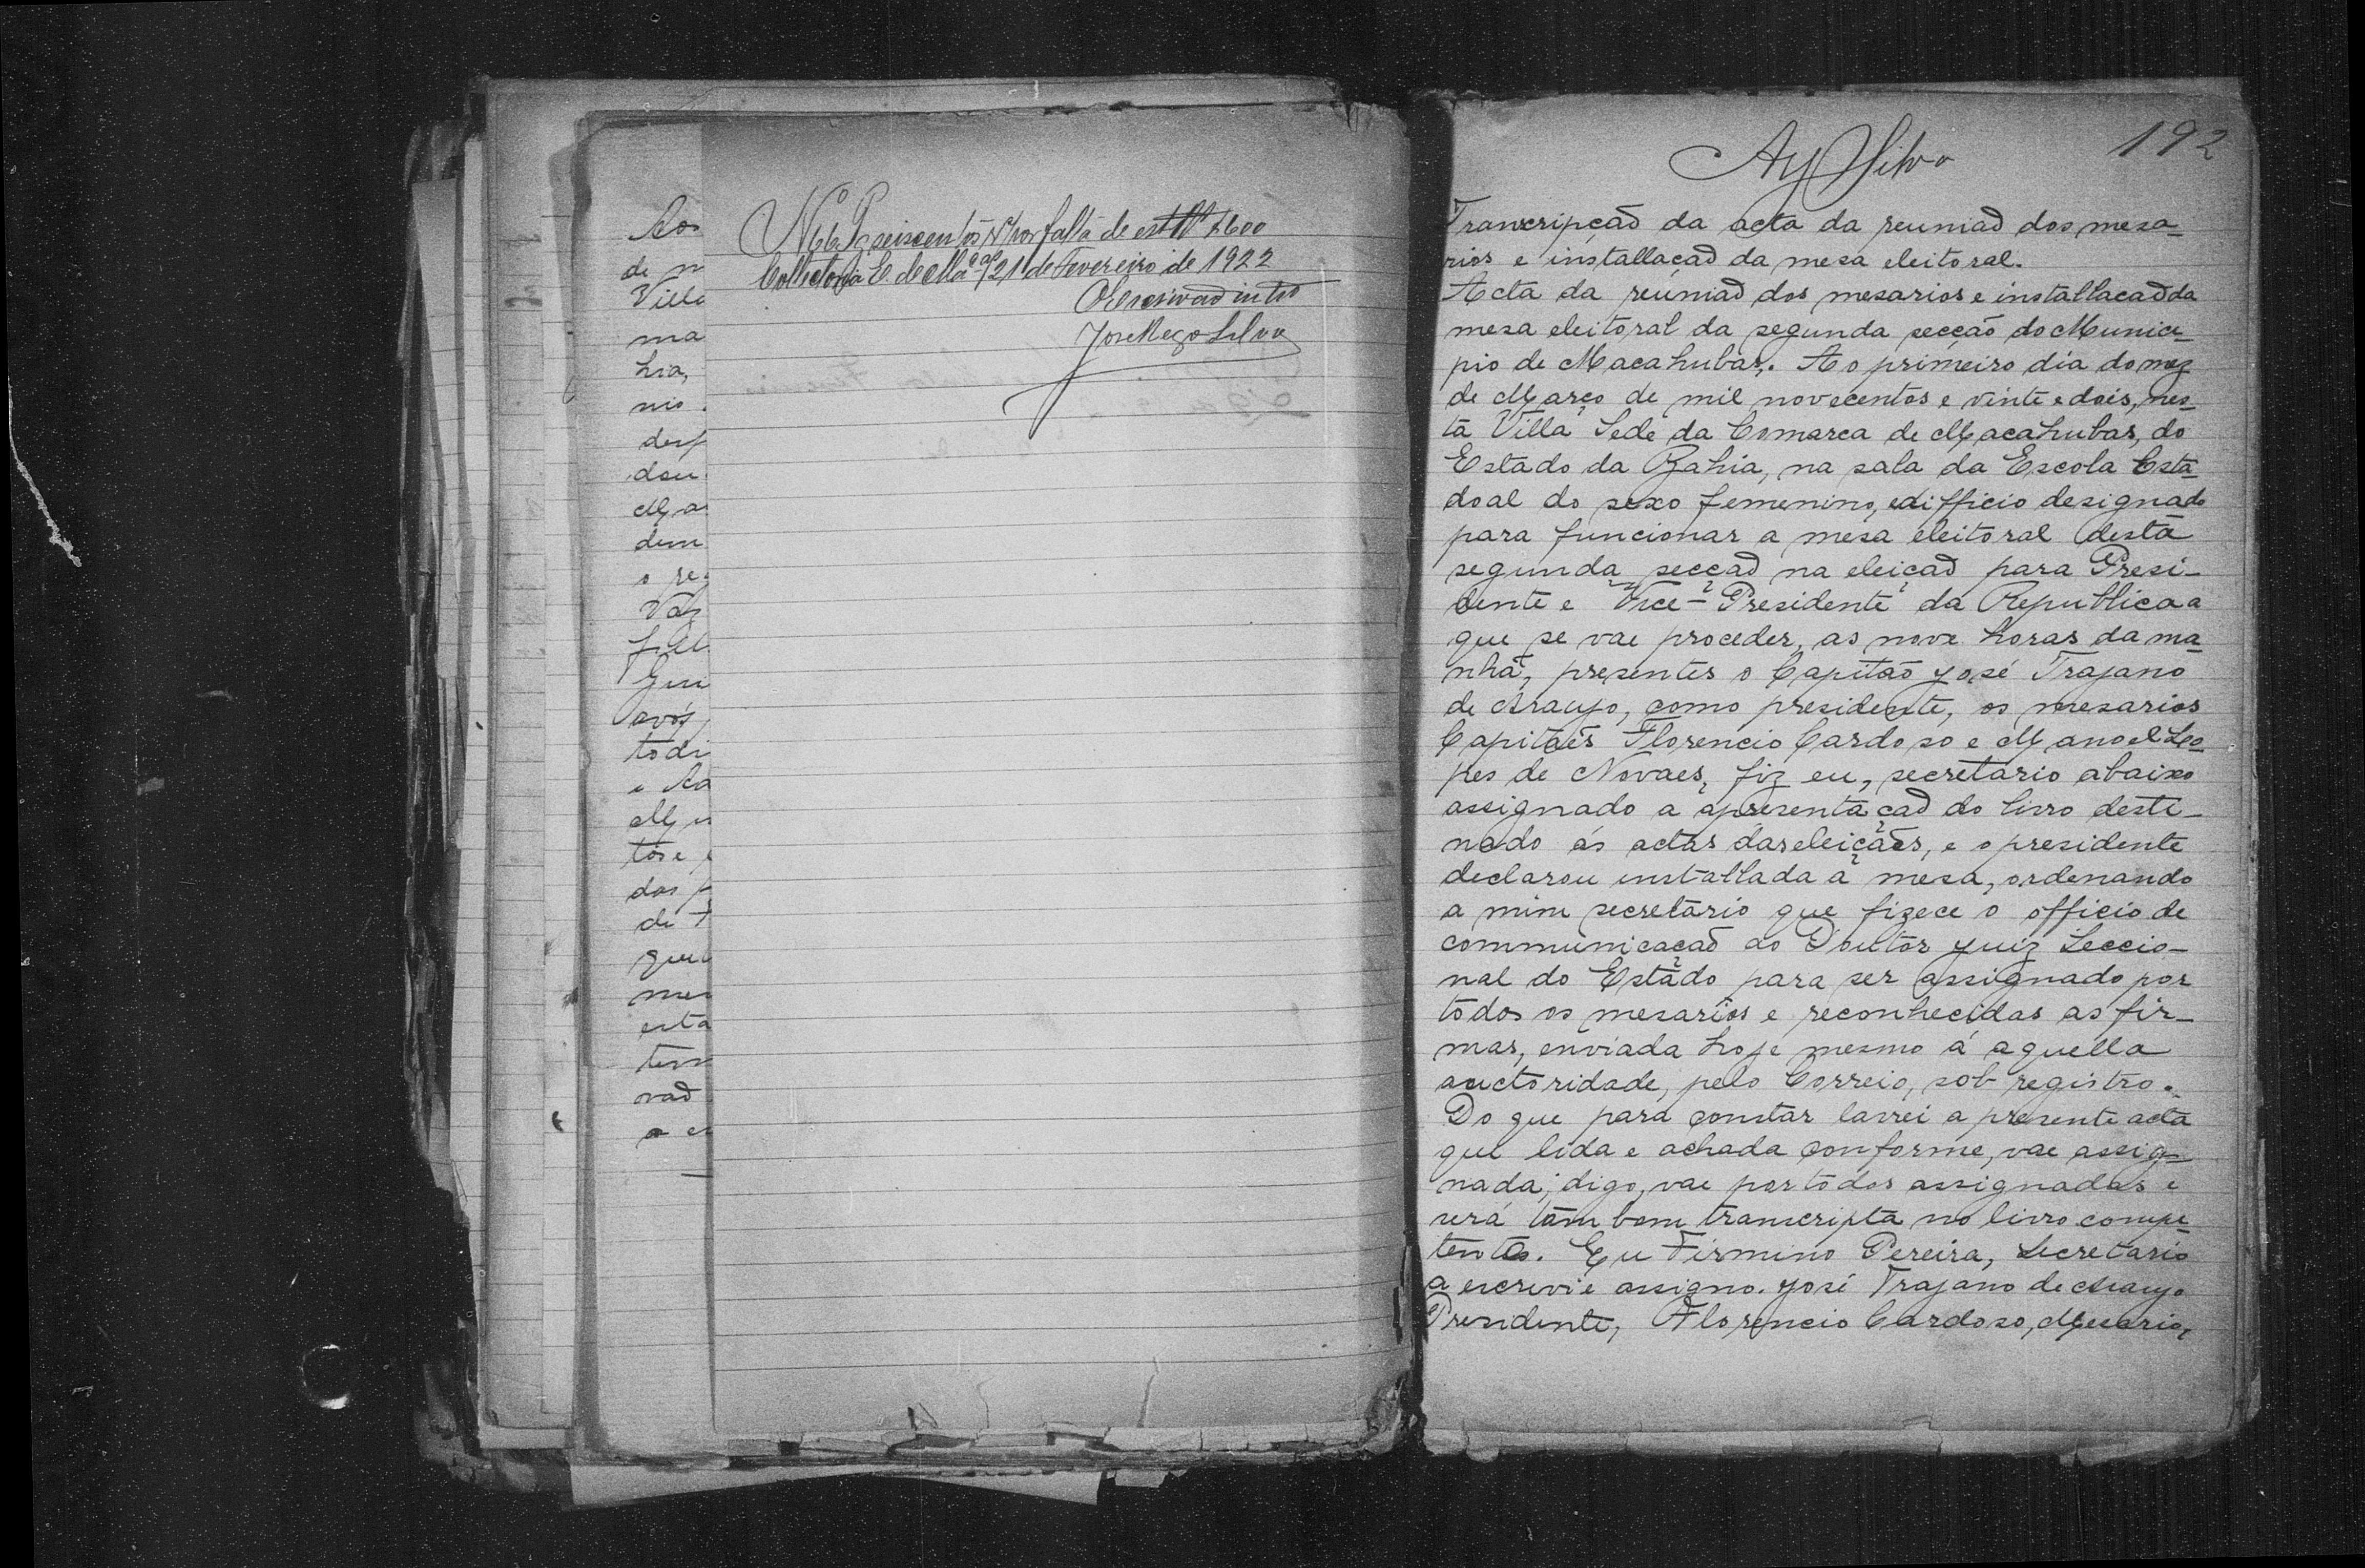 Aos
de m
Villa
ma
hia,
nio
desp
dou
Ma
dem
o re
Vas
fal
Gui
avós
todi
e Ca
Ma
tos e
das p
de
que
mer
esta
tem
vad
a es
seiscentos rs por falta de estlla $600
Collectoria E. de Macas 21 de Fevereiro de 1922
O Escrivão intro
José Rego Silva
192
Ay Silva
Transcripção da acta da reunião dos mesa-
rios e installação da mesa eleitoral.
Acta da reunião dos mesarios e installacão da
mesa eleitoral da segunda secção do Munici-
pio de Macahubas. Ao primeiro dia do mez
de Março de mil novecentos e vinte e dois, nes-
ta Villa Sede da Comarca de Macahubas, do
Estado da Bahia, na sala da Escola Esta-
doal do sexo femenino, edifficio designado
para funcionar a mesa eleitoral desta
segunda secção na eleição para Presi-
dente e Vice-Presidente da Republica a
que se vae proceder, as nove horas da ma-
nhã, presentes o Capitão José Trajano
de Araujo, como presidente, os mesarios
Capitães Florencio Cardoso e Manoel Lo-
pes de Novaes, fiz eu, secretario abaixo
assignado a apresentação do livro desti-
nado ás actas das eleições, e o presidente
declarou installada a mesa, ordenando
a mim secretario que fizece o officio de
communicação ao Doutor Juiz Seccio-
nal do Estado para ser assignado por
todos os mesarios e reconhecidas as fir-
mas, enviada hoje mesmo á aquella
auctoridade, pelo Correio, sob registro.
Do que para constar lavrei a presente acta
que lida e achada conforme, vae assig-
nada, digo, vae por todos assignadas e
será tambem transcripta no livro compe-
tente. Eu Firmino Pereira, Secretario
a escrevi e assigno. José Trajano de Araujo
Presidente, Florencio Cardoso, Mesario,